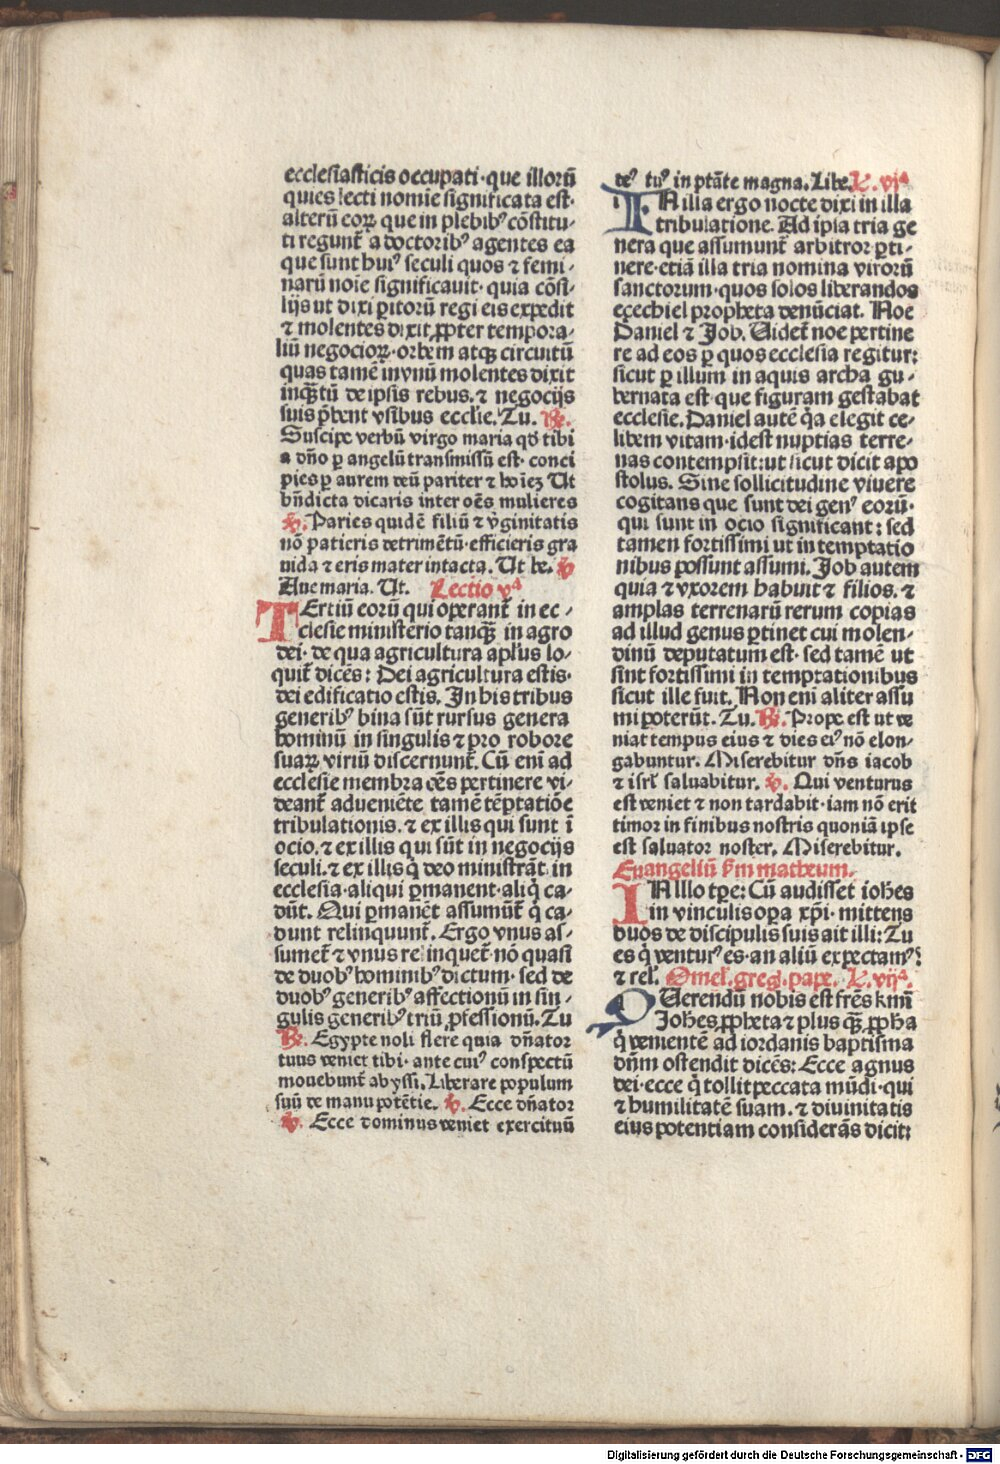 ecclesiasticis occupati·que illorū
quies lecti nomīe significata est·
alterū eoꝝ que in plebibꝰ cōstitu-
ti regunt̄ a doctoribꝰ agentes ea
que sunt huiꝰ seculi quos ⁊ femi-
narū noīe significauit· quia cōsi-
lijs ut dixi ꝑitorū regi eis expedit
⁊ molentes dixit ꝓpter tempora-
liū negocioꝝ·orbem atqꝫ circuitū
quas tamē in vnū molentes dixit
inqꝫtū de ipsis rebus.⁊ negocijs
suis p̄bent vsibus ecclīe. Tu. ℟.
Suscipe verbū virgo maria qd̛ tibi
a dn̄o ꝑ angelū transmissū est· conci
pies ꝑ aurem deū pariter ⁊ hoīeꝫ Ut
bn̄dicta dicaris inter oēs mulieres
℣. Paries quidē filiū ⁊ v̛ginitatis
nō patieris detrimētū·efficieris gra
uida ⁊ eris mater intacta. Ut be. ℣
Aue maria. Ut. Lectio vᵃ
TErtiū eorū qui operant̄ in ec-
clesie ministerio tanqꝫ in agro
dei· de qua agricultura apl̄us lo-
quit̄ dicēs: Dei agricultura estis·
dei edificatio estis. In his tribus
generibꝰ bina sūt rursus genera
hominū in singulis ⁊ pro robore
suaꝝ viriū discernunt̄. Cū eni ad
ecclesie membra oēs pertinere vi-
deant̄ adueniēte tamē tēptatiōe
tribulationis.⁊ ex illis qui sunt ī
ocio.⁊ ex illis qui sūt in negocijs
seculi.⁊ ex illis q̇ deo ministrāt in
ecclesia·aliqui ꝑmanent·aliq̇ ca-
dūt. Qui ꝑmanēt assumūt̄ q̇ ca-
dunt relinquunt̄. Ergo vnus as-
sumet̄ ⁊ vnus relinquet̄·nō quasi
de duobꝰ hominibꝰ dictum· sed de
duobꝰ generibꝰ affectionū in sin-
gulis generibꝰ triū ꝓfessionū. Tu
℟. Egypte noli flere quia dn̄ator
tuus veniet tibi·ante cuiꝰ conspectū
mouebunt̄ abyssi. Liberare populum
suū de manu potētie. ℣. Ecce dn̄ator
℣. Ecce dominus veniet exercituū
deꝰ tuꝰ in ptāte magna. Libe. L. vjᵃ
IN illa ergo nocte dixi in illa
tribulatione. Ad ipsa tria ge
nera que assumunt̄ arbitror ꝑti-
nere·etiā illa tria nomina virorū
sanctorum·quos solos liberandos
eȥechiel propheta denūciat. Noe
Daniel ⁊ Job. Uidet̄ noe pertine
re ad eos ꝑ quos ecclesia regitur:
sicut ꝑ illum in aquis archa gu-
bernata est·que figuram gestabat
ecclesie. Daniel autē q̇a elegit ce-
libem vitam·idest nuptias terre-
nas contempsit:ut sicut dicit apo
stolus. Sine sollicitudine viuere
cogitans que sunt dei genꝰ eorū·
qui sunt in ocio significant: sed
tamen fortissimi ut in temptatio
nibus possunt assumi. Job autem
quia ⁊ vxorem habuit ⁊ filios.⁊
amplas terrenarū rerum copias
ad illud genus ꝑtinet cui molen-
dinū deputatum est· sed tamē ut
sint fortissimi in temptationibus
sicut ille fuit. Non eni aliter assu
mi poterūt. Tu. ℟. Prope est ut ve
niat tempus eius ⁊ dies eiꝰ nō elon-
gabuntur. Miserebitur dn̄s iacob
⁊ isrl̄ saluabitur. ℣. Qui venturus
est veniet ⁊ non tardabit·iam nō erit
timor in finibus nostris quoniā ipse
est saluator noster. Miserebitur.
Euangeliū s̄m matheum.
IN illo tꝑe: Cū audisset iohēs
in vinculis oꝑa xp̄i· mittens
duos de discipulis suis ait illi: Tu
es q̇ venturꝰ es·an aliū expectamꝰ?
⁊ reł. Omeł.greg.pape. L.vijᵃ.
QUerendū nobis est frēs kmi
Johēs ꝓpheta ⁊ plus qꝫ ꝓpha
q̇ venientē ad iordanis baptisma
dn̄m ostendit dicēs: Ecce agnus
dei·ecce q̇ tollit peccata mūdi·qui
⁊ humilitatē suam.⁊ diuinitatis
eius potentiam considerās dicit:
Digitalisierung gefördert durch die Deutsche Forschungsgemeinschaft - DFG